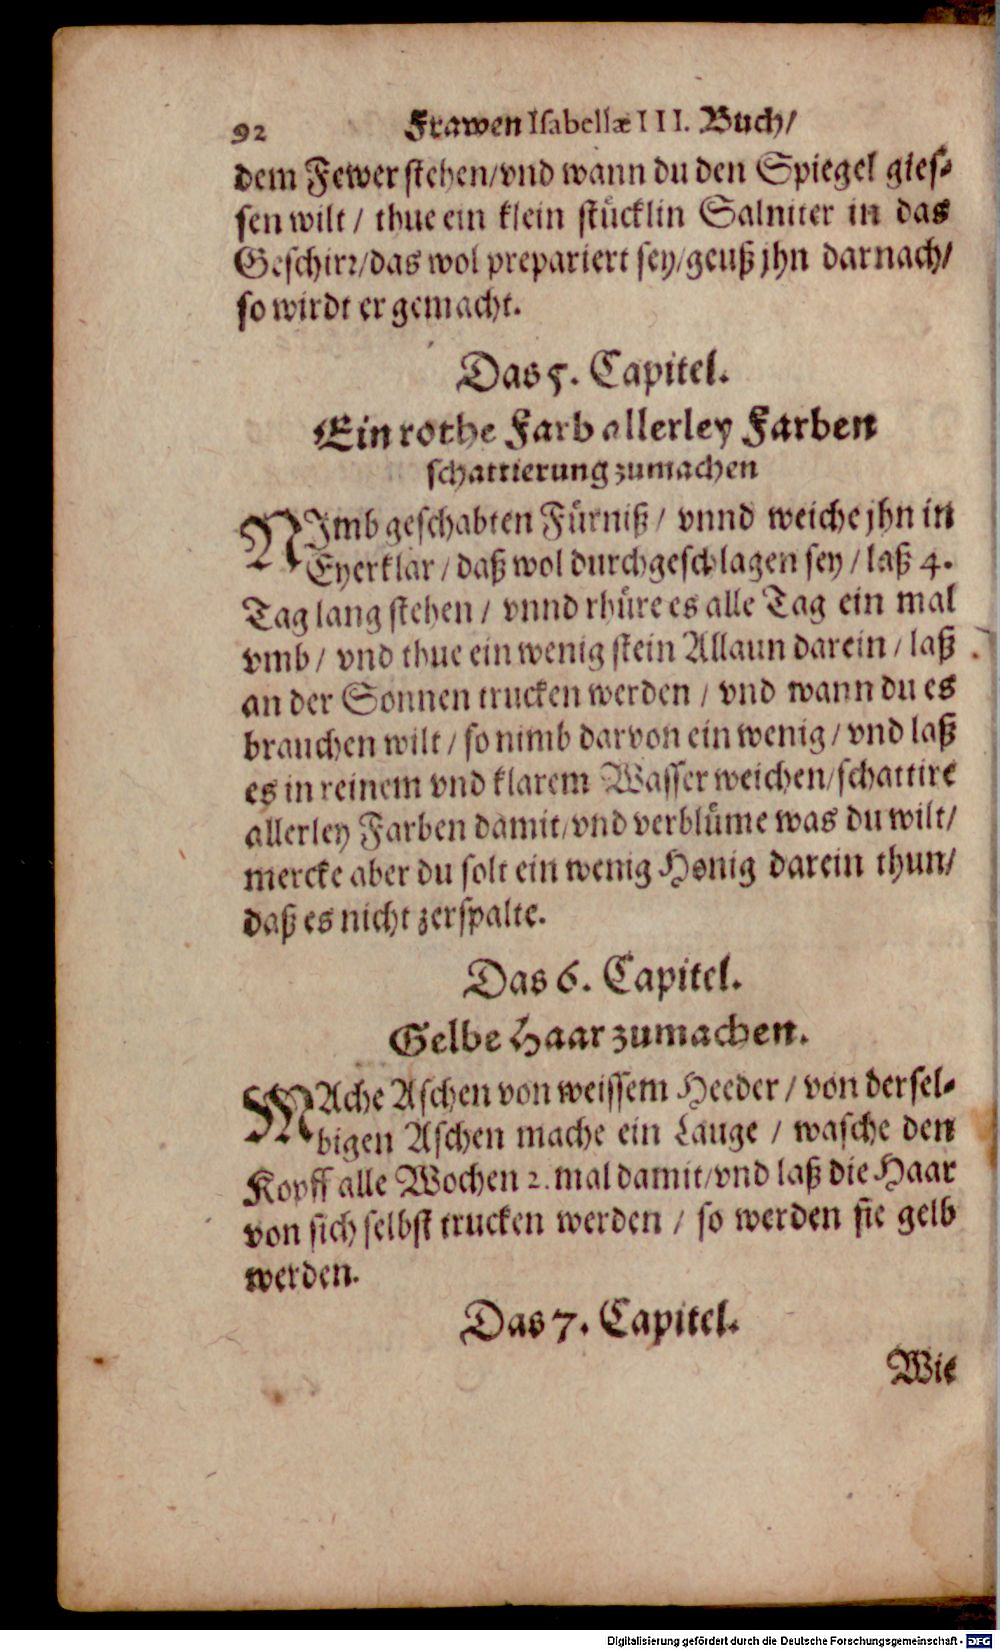 92 Frawen Isabellæ III. Buch/
dem Fewer stehen/vnd wann du den Spiegel gies-
sen wilt / thue ein klein stücklin Salniter in das
Geschirr/das wol prepariert sey/geuß jhn darnach/
so wirdt er gemacht.
Das 5. Capitel.
Ein rothe Farb allerley Farben
schattierung zumachen
NImb geschabten Fürniß / vnnd weiche jhn in
Eyerklar / daß wol durchgeschlagen sey / laß 4.
Tag lang stehen / vnnd rhüre es alle Tag ein mal
vmb / vnd thue ein wenig stein Allaun darein / laß
an der Sonnen trucken werden / vnd wann du es
brauchen wilt / so nimb darvon ein wenig / vnd laß
es in reinem vnd klarem Wasser weichen/schattire
allerley Farben damit/vnd verblüme was du wilt/
mercke aber du solt ein wenig Honig darein thun/
daß es nicht zerspalte.
Das 6. Capitel.
Gelbe Haar zumachen.
MAche Aschen von weissem Heeder / von dersel-
bigen Aschen mache ein Lauge / wasche den
Kopff alle Wochen 2. mal damit/vnd laß die Haar
von sich selbst trucken werden / so werden sie gelb
werden.
Das 7. Capitel.
Wie
Digitalisierung gefördert durch die Deutsche Forschungsgemeinschaft - DFG